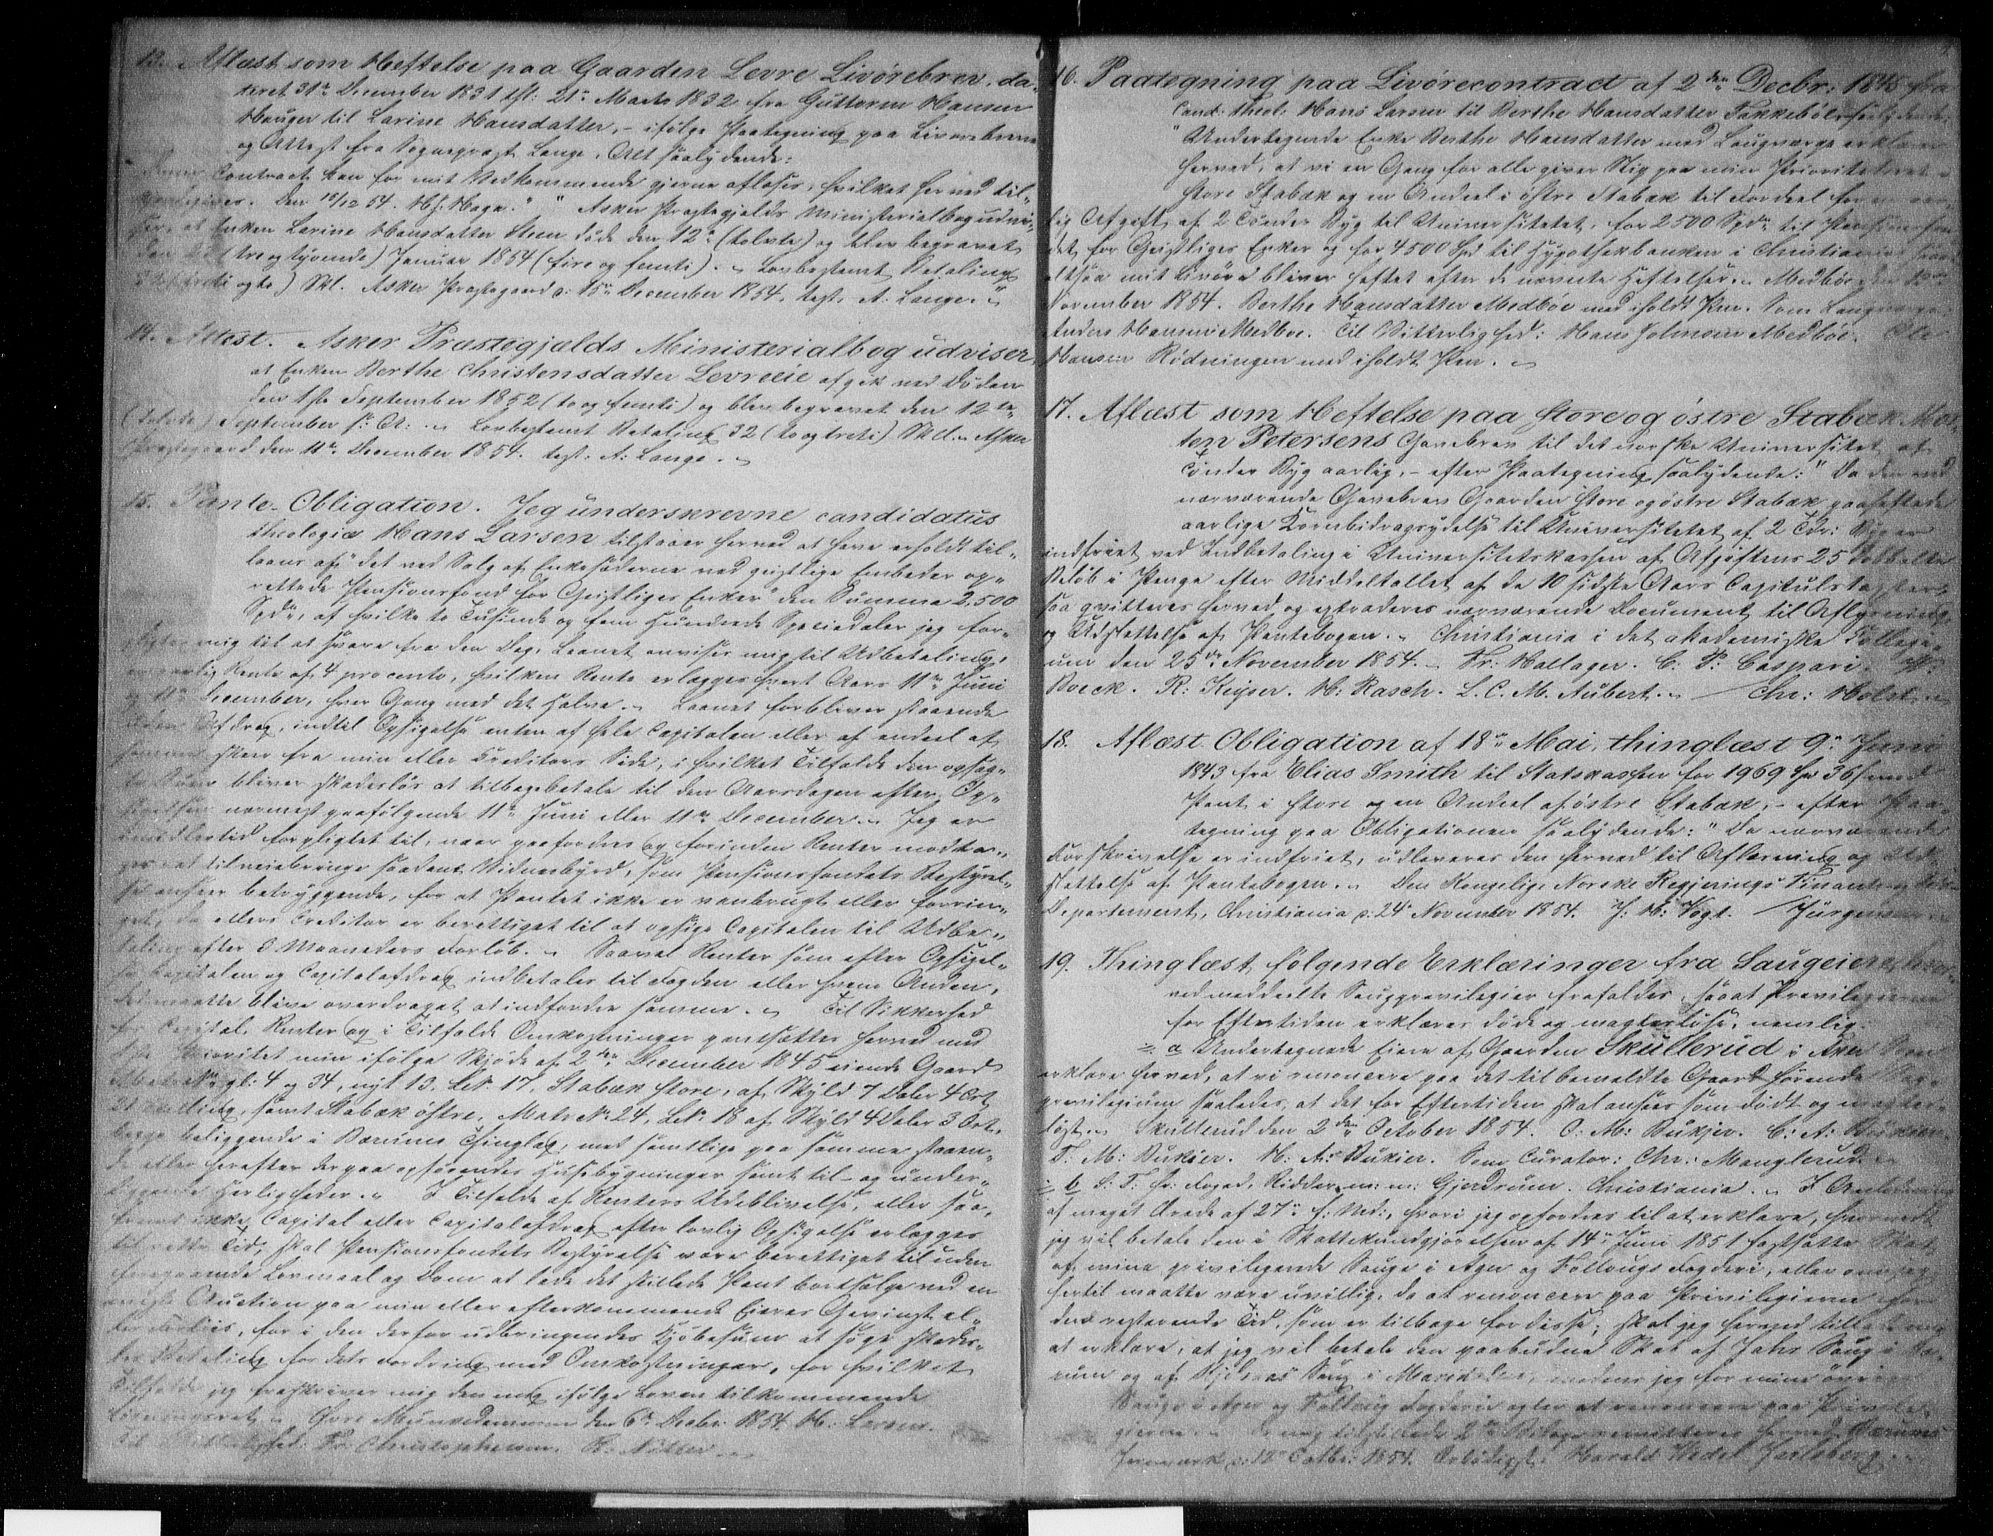 13. Aflæst som Heftelse paa Gaarden Levre Livørebrev, da-
teret 31te December 1831 thl: 21de Marts 1832 fra Guttorm Hansen
Hauger til Larine Hansdatter, – ifølge Paategning paa Livørebrevet
og Attest fra Sognepræst Lange, Alt saalydende:
Contract kan for mit Vedkommende gjerne aflæses, hvilket herved til-
Den 18/12 54. H: Hage." " Asker Præstegjelds Ministerialbog udvi-
ser, at Enken Larine Hansdatter Steen døde den 12te (tolvte) og blev begravet
(tre og tyvende) Januar 1854 (fire og femti). Lovbestemt Betaling
Skl. Asker Præstegaard d: 18de December 1854. testr. A: Lange."
14. Attest. Asker Præstegjælds Ministerialbog udviser
at Enken Berthe Christensdatter Levreeie afgik ved Døden
den 1ste September 1852 (to og femti) og blev begravet den 12te
(tolvte) September s: A: Lovbestemt Betaling 32 (to og treti) Skl. Asker
Præstegaard den 11te December 1854. testr. A: Lange.
15. Pante-Obligation. Jeg underskrevne candidatus
theologiæ Hans Larsen tilstaaer herved at have erholdt til-
laans af "det ved Salg af Enkesæderne ved geistlige Embeder op-
rettede Pensionsfond for Geistliges Enker" den Summa 2,500
Spd, af hvilke to Tusinde og fem Hundrede Speciedaler jeg for-
pligter mig til at svare fra den Dag, Laanet anvises mig til Udbetaling,
en aarlig Rente af 4 procento, hvilken Rente erlægges hvert Aars 11te Juni
og 11te December, hver Gang med det Halve. Laanet forbliver staaende
uden Afdrag, indtil Opsigelse enten af hele Capitalen eller af endeel af
samme skeer fra min eller Creditors Side, i hvilket Tilfælde den opsag-
te Sum bliver skadesløs at tilbagebetale til den Aarsdagen efter Op-
sigelsen nærmest paafølgende 11te Juni eller 11te December. Jeg er
imidlertid forpligtet til, naar paafordres og forinden Renter modta-
ges at tilveiebringe saadant Vidnesbyrd, som Pensionsfondets Bestyrel-
se anseer betryggende, for at Pantet ikke er vanbrugt eller forrin-
get, da ellers Creditor er berettiget til at opsige Capitalen til Udbe-
taling efter 3 Maaneders Forløb. Saavel Renter som efter Opsigel-
se Capitalen og Capitalafdrag indbetales til Fogden eller hvem Anden,
det maatte blive overdraget at indfordre samme. Til Sikkerhed
for Capital, Renter og i Tilfælde Omkostninger pantsættes herved med
1ste Prioritet min ifølge Skjøde af 2den December 1845 eiende Gaard
Matr: No gl: 4 og 34, nyt 13. L.No. 17. Stabæk store, af Skyld 7 Daler 4 Ort
21 Skilling, samt Stabæk østre, Matr No. 24, L.No. 18 af Skyld 4 Daler 3 Ort
begge beliggende i Bærums Thinglag, med samtlige paa samme staaen-
de eller herefter derpaa opførendes Husebygninger samt til- og under-
liggende Herligheder. I Tilfælde af Renters Udeblivelse, eller saa-
fremt ikke Capital eller Capitalafdrag efter lovlig Opsigelse erlægges
til rette Tid, skal Pensionsfondets Bestyrelse være berettiget til uden
foregaaende Lovmaal og Dom at lade det stillede Pant bortsælge ved en
enkelt Auction paa min eller efterkommende Eieres Gevinst el-
ler Forliis, for i den derfor udbringendes Kjøbesum at søge skades-
løs Betaling for dets Fordring med Omkostninger, for hvilket
Tilfælde jeg fraskriver mig den mig ifølge Loven tilkommende
Løsningsret. Store Munkedammen den 6te Decbr: 1854. H: Larsen.
Til Vitterlighed: Fr: Christophersen. H: Nøtter
16. Paategning paa Livørecontract af 2den Decbr: 1845 fra
Cand: theol: Hans Larsen til Berthe Hansdatter Fakkebøl saalydende:
"Undertegnede Enke Berthe Hansdatter med Laugværge erklærer
herved, at vi en Gang for alle giver Slip paa min Prioritetsret i
store Stabæk og en Andeel i østre Stabæk til Fordeel for en aar-
lig Afgift af 2 Tønder Byg til Universitetet, for 2500 Spd til Pensionsfon
det for Geistliges Enker og for 4500 Spd til Hypothekbanken i Christiania, saa
altsaa mit Livøre bliver heftet efter de nævnte Heftelser. Medbøe den
November 1854. Berthe Hansdatter Medbøe med iholdt Pen. Som Laugværge:
Anders Hansen Medboe. Til Vitterlighed: Hans Johnsen Medbøe. Ole
Hansen Rødningen med iholdt Pen.
17. Aflæst som Heftelse paa store og østre Stabæk Mor-
ten Petersens Gavebrev til det norske Universitet af
Tønder Byg aarlig, – efter Paategning saalydende: "Da den ved
nærværende Gavebrev Gaarden store og østre Stabæk paaheftede
aarlige Kornbidragsydelse til Universitetet af 2 Tdr: Byg er
indfriet ved Indbetaling i Universitetskassen af Afgiftens 25 dobbelte
Beløb i Penge efter Middeltallet af de 10 sidste Aars Capitulstaxter,
saa qvitteres herved og extraderes nærværende Document til Aflysning
og Udslettelse af Pantebogen. Christiania i det akademiske Collegi-
um den 25de November 1854. Fr: Hallager. C. P: Caspari.
Boeck. R: Keyser. H: Rasch. L. C. M. Aubert. / Chr: Holst.
18. Aflæst Obligation af 18de Mai, thinglæst 9de Juni
1843 fra Elias Smith til Statskassen for 1969 Spd 36 s med
Pant i store og en Andeel af østre Stabæk, – efter Paa-
tegning paa Obligationen saalydende: "Da nærværende
Forskrivelse er indfriet, udleveres den herved til Aflæsning og Ud-
slettelse af Pantebogen. Den Kongelige Norske Regjerings Finants og
Departement, Christiania d: 24de November 1854. J: H: Vogt. / Jürgensen
19. Thinglæst følgende Erklæringer fra Saugeiere, hvor-
ved meddeelte Saugprivilegier frafaldes, saaat Privilegierne
for Eftertiden erklæres døde og magtesløse, nemlig:
a Undertegnede Eiere af Gaarden Skullerud i Aker Sogn
erklære herved, at vi renoncere paa det til bemeldte Gaard hørende Saug-
privilegium saaledes, at det for Eftertiden skal ansees som dødt og magtes-
løst. Skullerud den 2den October 1854. O. M: Bukier. C: A: Bukier.
T. M: Bukier. H. A: Bukier. Som Curator: Chr: Manglerud.
b S. T. Hr: Foged, Ridder m: m: Gjerdrum. Christiania. I Anledning
af meget Ærede af 27de f: Md:, hvori jeg opfordres til at erklære, hvorvidt
jeg vil betale den i Skattekundgjørelsen af 14de Juni 1851 fastsatte Skat
af mine privilegerede Sauge i Ager og Follougs Fogderi, eller om jeg
hertil maatte være uvillig, da at renoncere paa Privilegierne for
den resterende Tid, som er tilbage for disse, skal jeg herved tillade mig
at erklære, at jeg vil betale den paabudne Skat af Jahr Saug i Bæ-
rum og af Kjelsaas Saug i Maridalen, medens jeg for mine øvrige
Sauge i Ager og Follougs Fogderi agter at renoncere paa Privile-
gierne. De mig tilstillede 2de Bilage remitteres herved. Bærums
Jernværk d: 12te Octbr: 1854. Ærbødigst. Harald Wedel Jarlsberg.